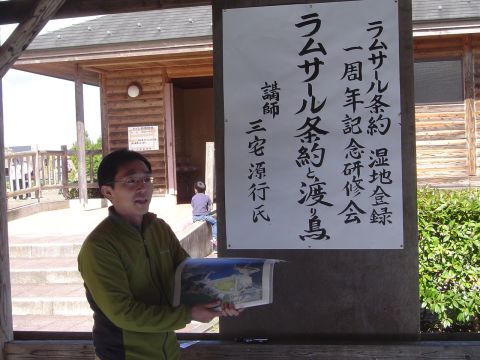 ラムサール条約 湿地登録
一周年記念研修会
ラムサール条約と渡り鳥
講師 三宅源行氏